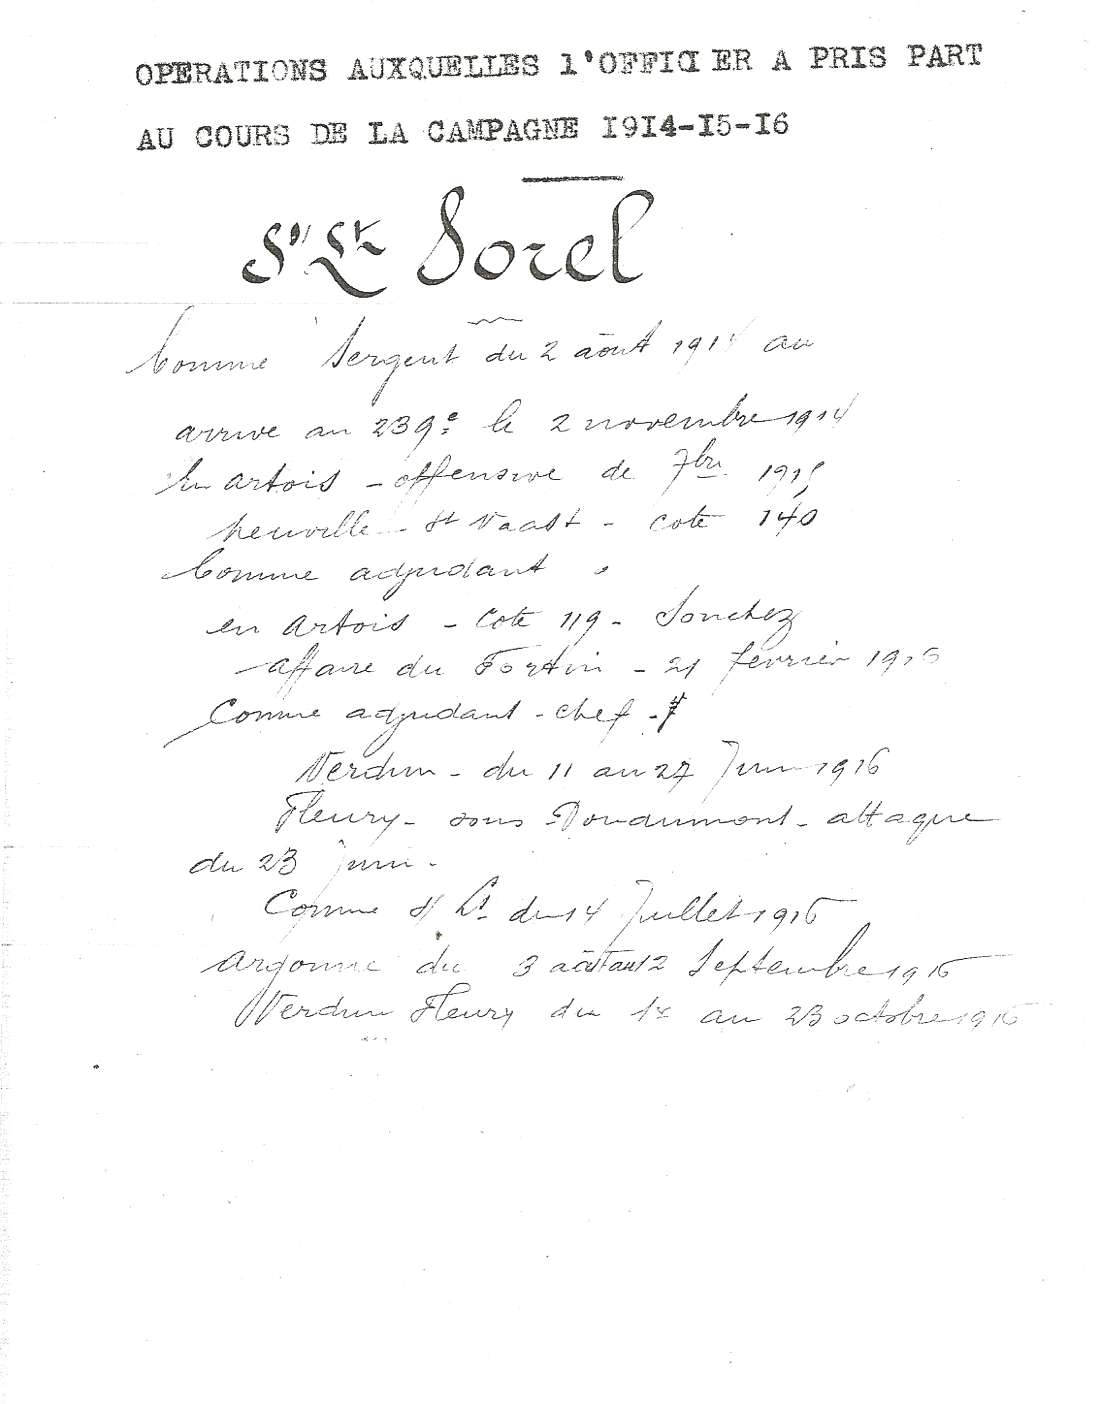 OPERATIONS AUXQUELLES l'OFFICIER A PRIS PART
AU COURS DE LA CAMPAGNE I9I4-I5-I6
S/Lt Sorel
Comme Sergent du 2 août 1914 au
arrive au 239e le 2 novembre 1914
En artois - offensive de 7bre 1915
Neuville - St Vaast - cote 140
Comme adjudant
en artois - cote 119 - Souchez
affaire du Fortin - 21 février 1916
Comme adjudant - chef -
Verdun - du 11 au 27 Juin 1916
Fleury - sous - Douaumont - attaque
du 23 juin -
Comme S/Lt du 14 Juillet 1916
Argonne du 3 août au 12 Septembre 1916
Verdun Fleury du 1er au 23 octobre 1916